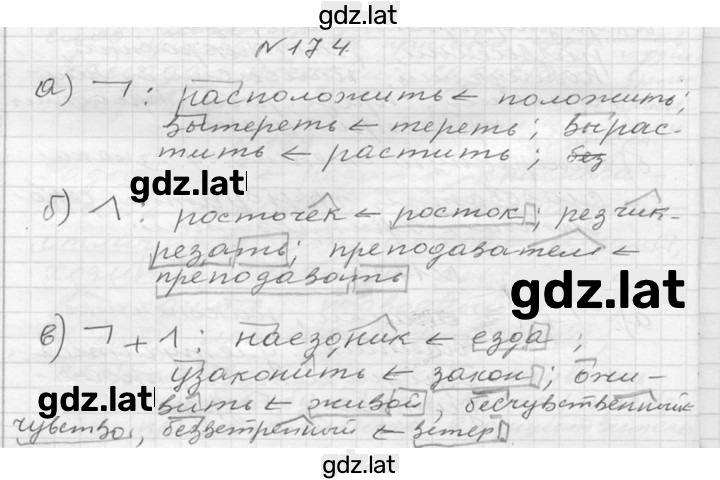 gdz.lat
N 174.
а) ¬ : расположить ← положить;
вытереть ← тереть; вырас-
тить ← растить; без
gdz.lat
б) ^ : росточек ← росток; резчик-
резать; преподаватель ←
преподавать
gdz.lat
в) ¬ + ^ : наездник ← езда ;
узаконить ← закон; ожи-
gdz.lat
вить ← живой, бесчувственный ←
чувство, безветренный ← ветер
gdz.lat